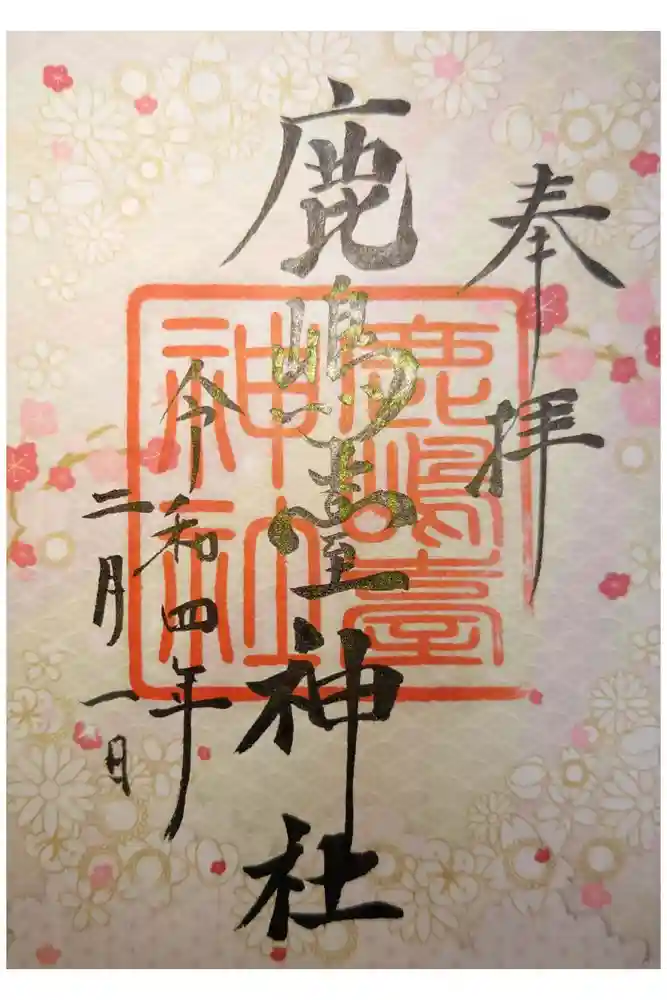 奉拝
鹿嶋臺神社
鹿嶋臺
神社
令和四年
二月一日